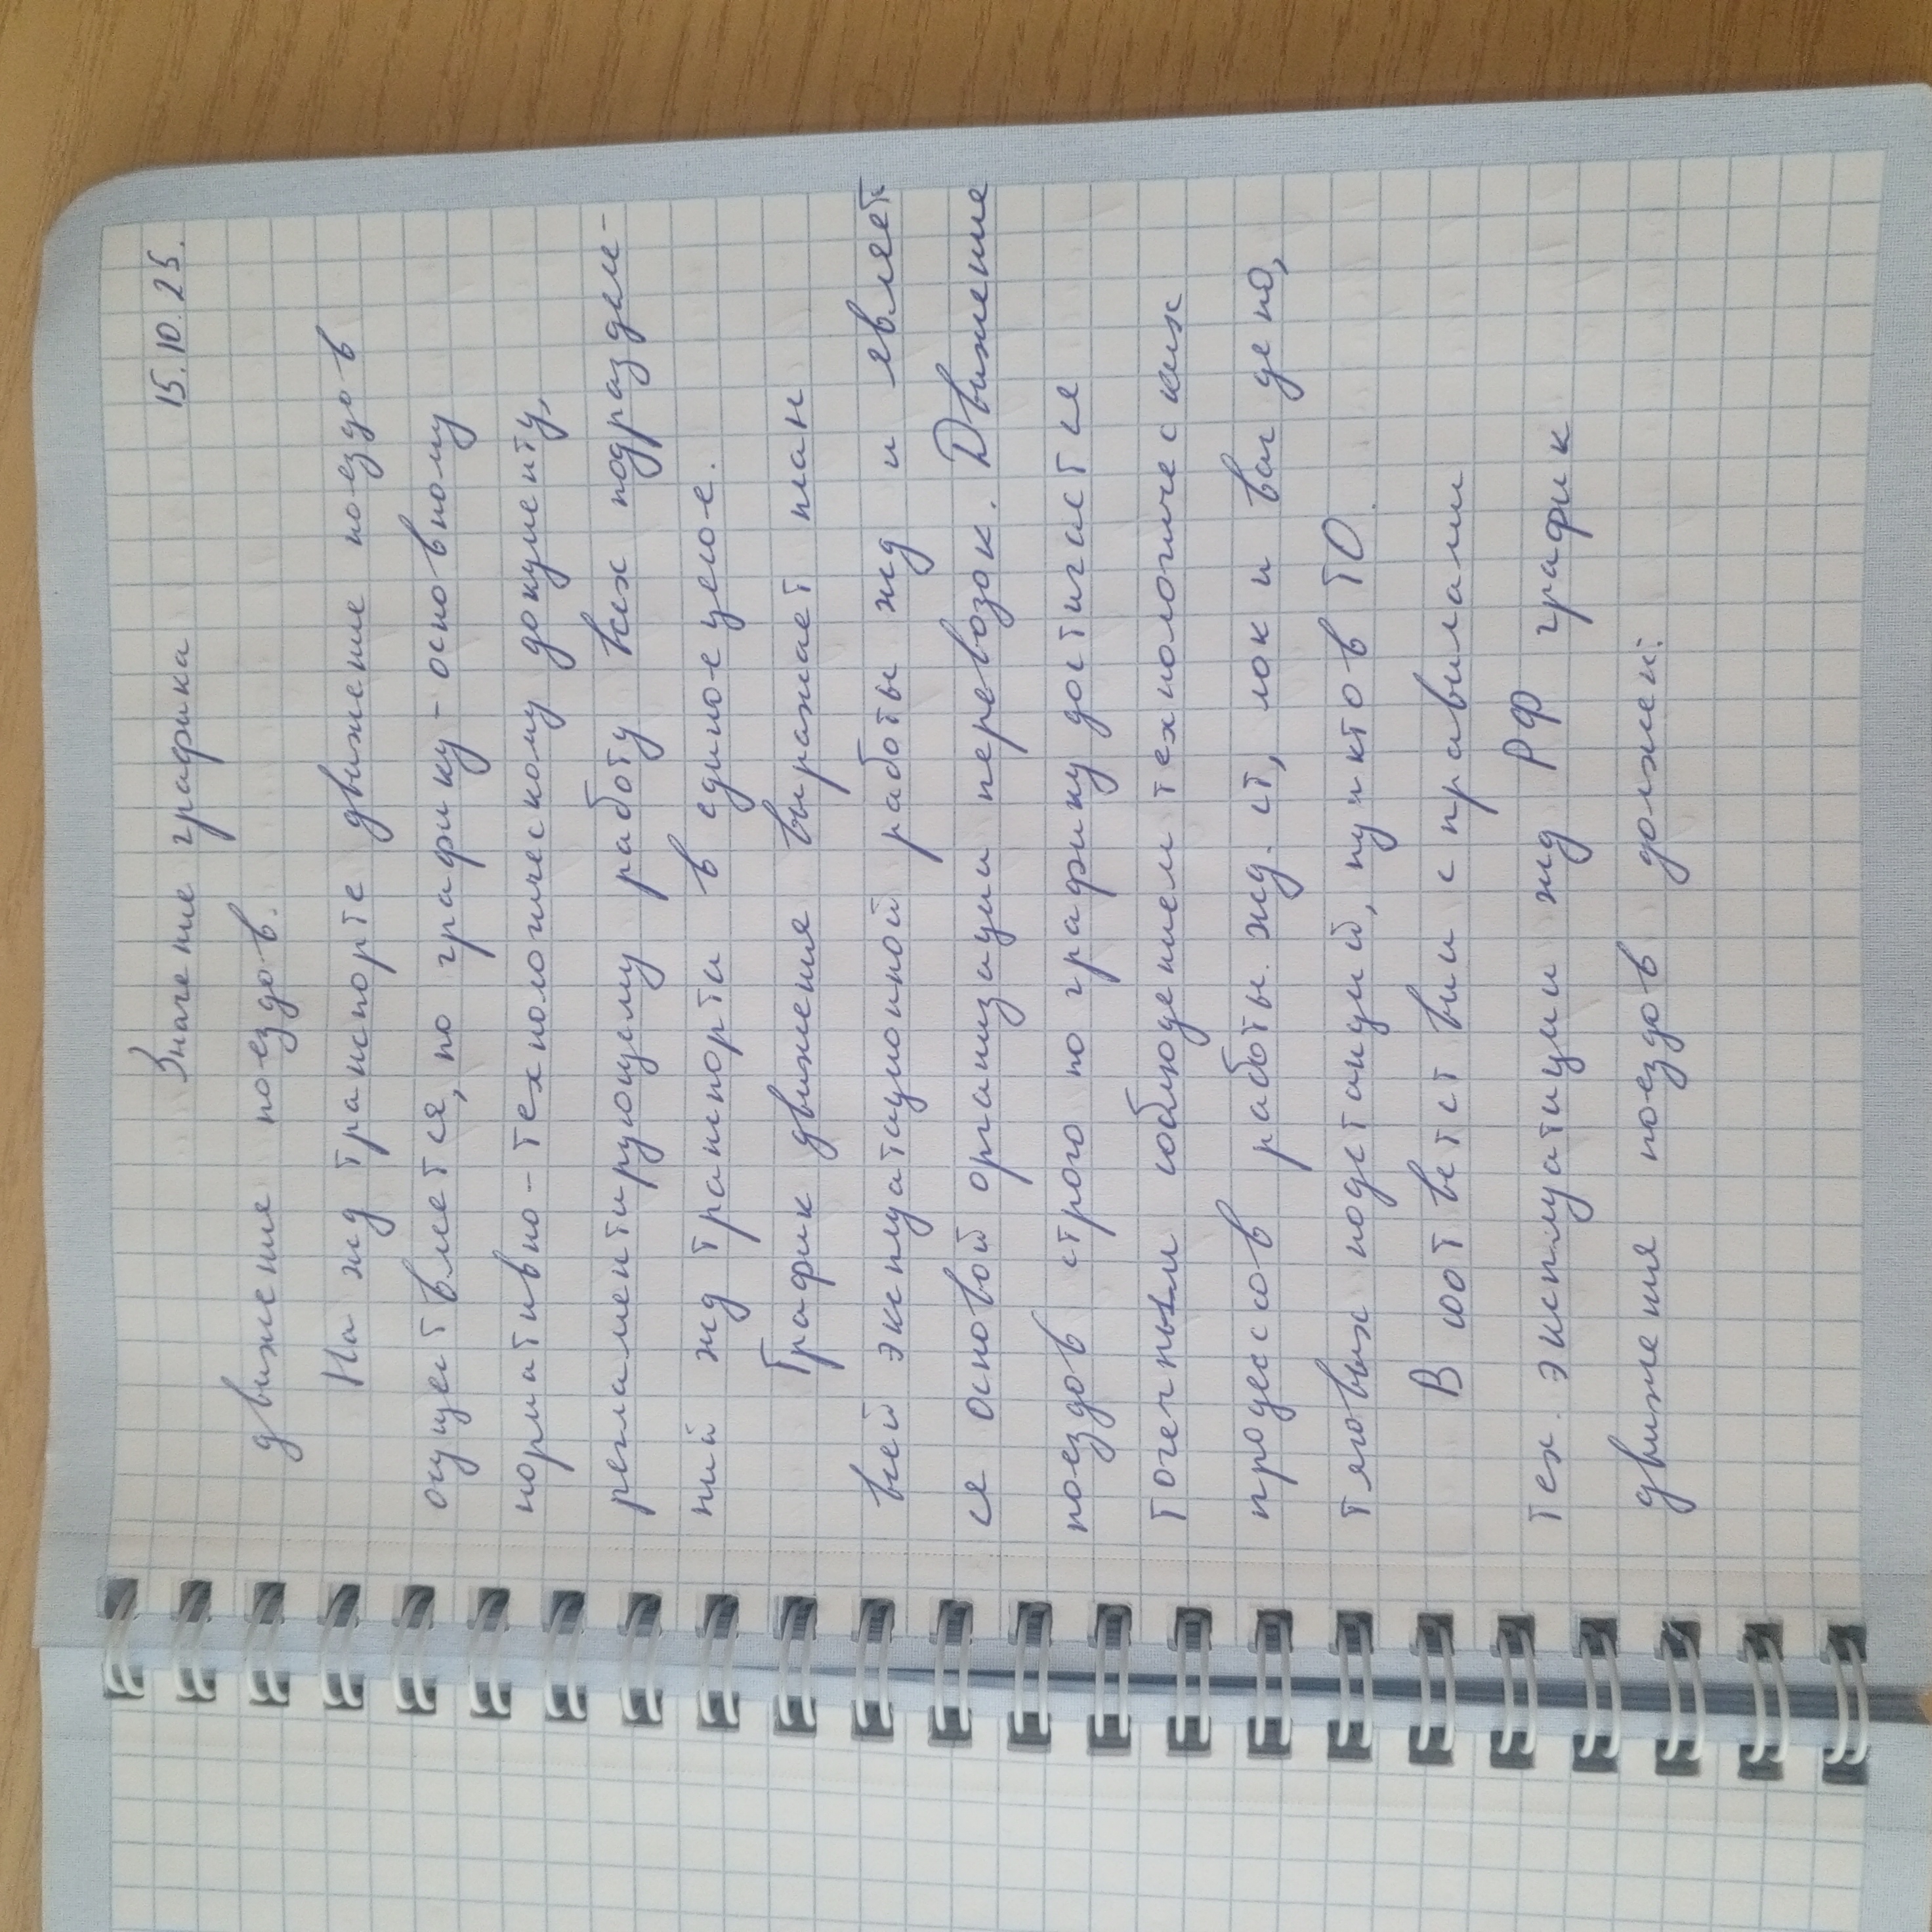 Значение графика 15.10.25.
движение поездов.
На жд транспорте движение поездов
осуществляется, по графику - основному
нормативно - технологическому документу,
регламентирующему работу всех подразделе-
ний жд транспорта в единое целое.
График движения выражает план
всей эксплуатационной работы жд и являет
ся основой организации перевозок. Движение
поездов строго по графику достигается
точечным соблюдением технологических
процессов работы. жд. ст, лок и ваг депо,
тяговых подстанций, пунктов ТО.
В соответствии с правилами
тех. эксплуатации жд РФ график
движения поездов должен: